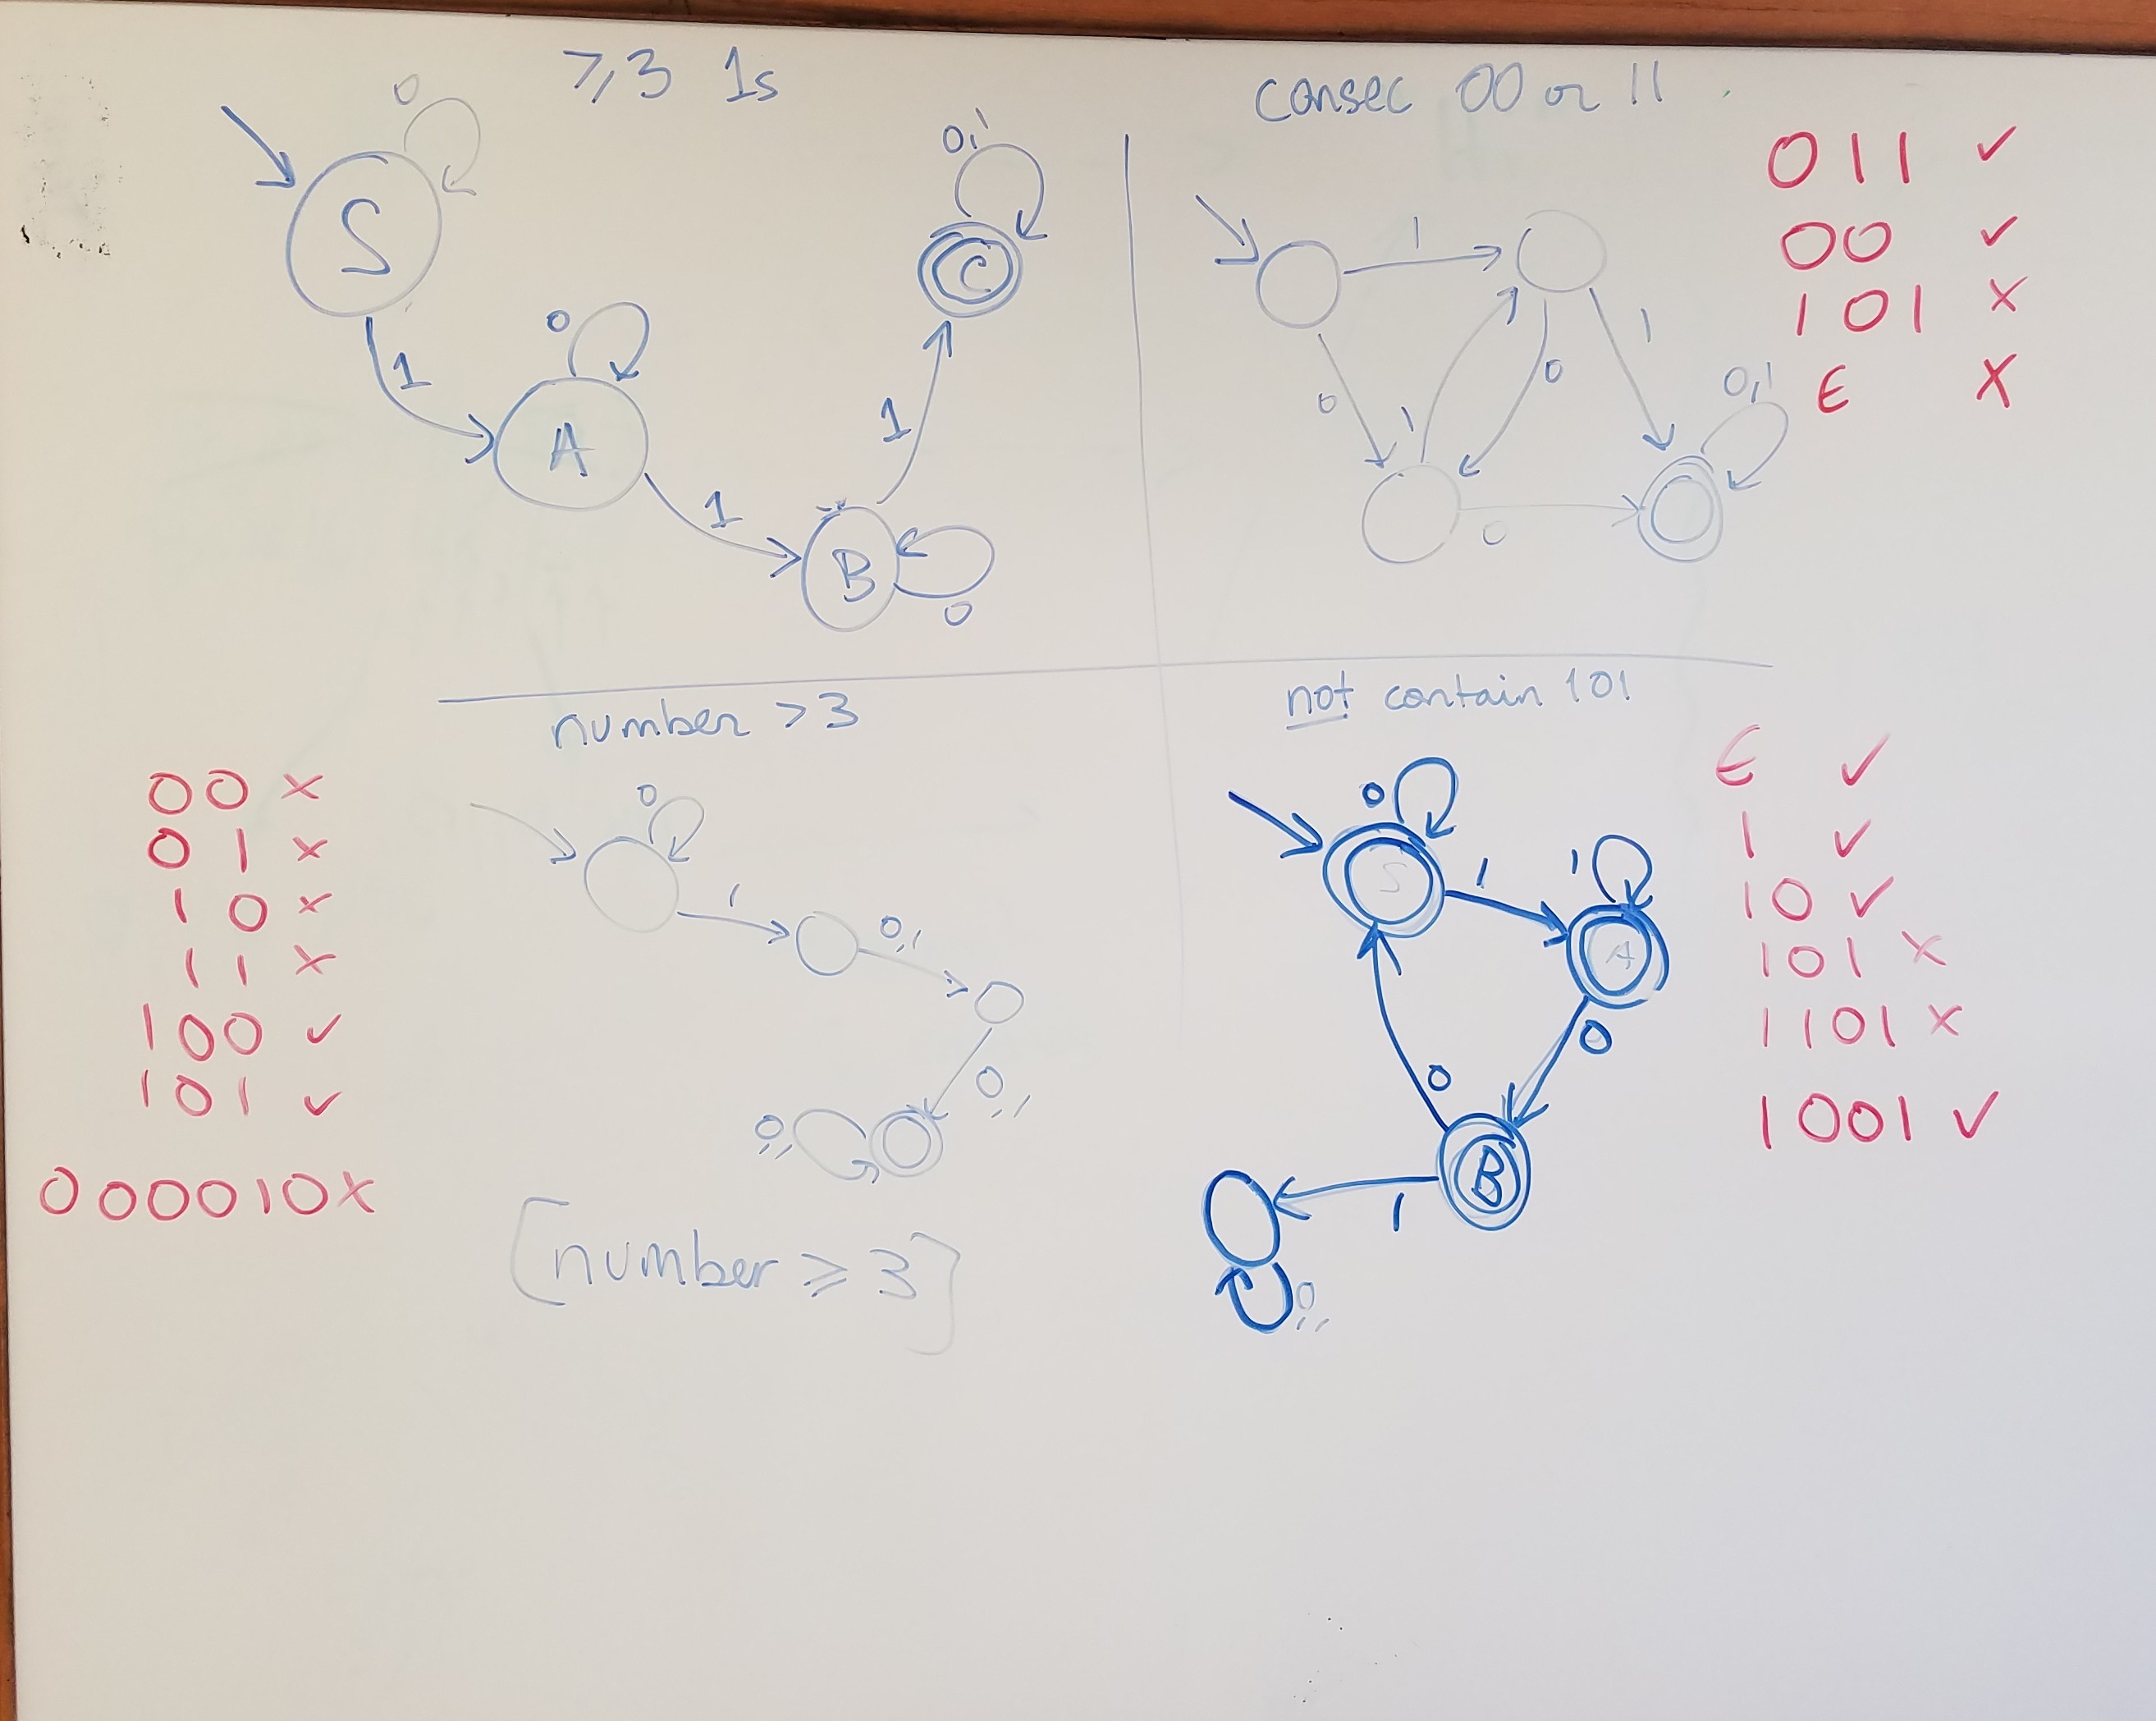 ≥3 1s
0
S
1
0
A
1
B
0
1
C
0,1
consec 00 or 11
1
0
1
0
1
0
0,1
011 ✓
00 ✓
101 ✗
ε ✗
number >3
0
1
0,1
0,1
0,1
[number ≥ 3]
00 ✗
01 ✗
10 ✗
11 ✗
100 ✓
101 ✓
000010 ✗
not contain 101
0
S
1
1
A
0
0
B
1
0,1
ε ✓
1 ✓
10 ✓
101 ✗
1101 ✗
1001 ✓